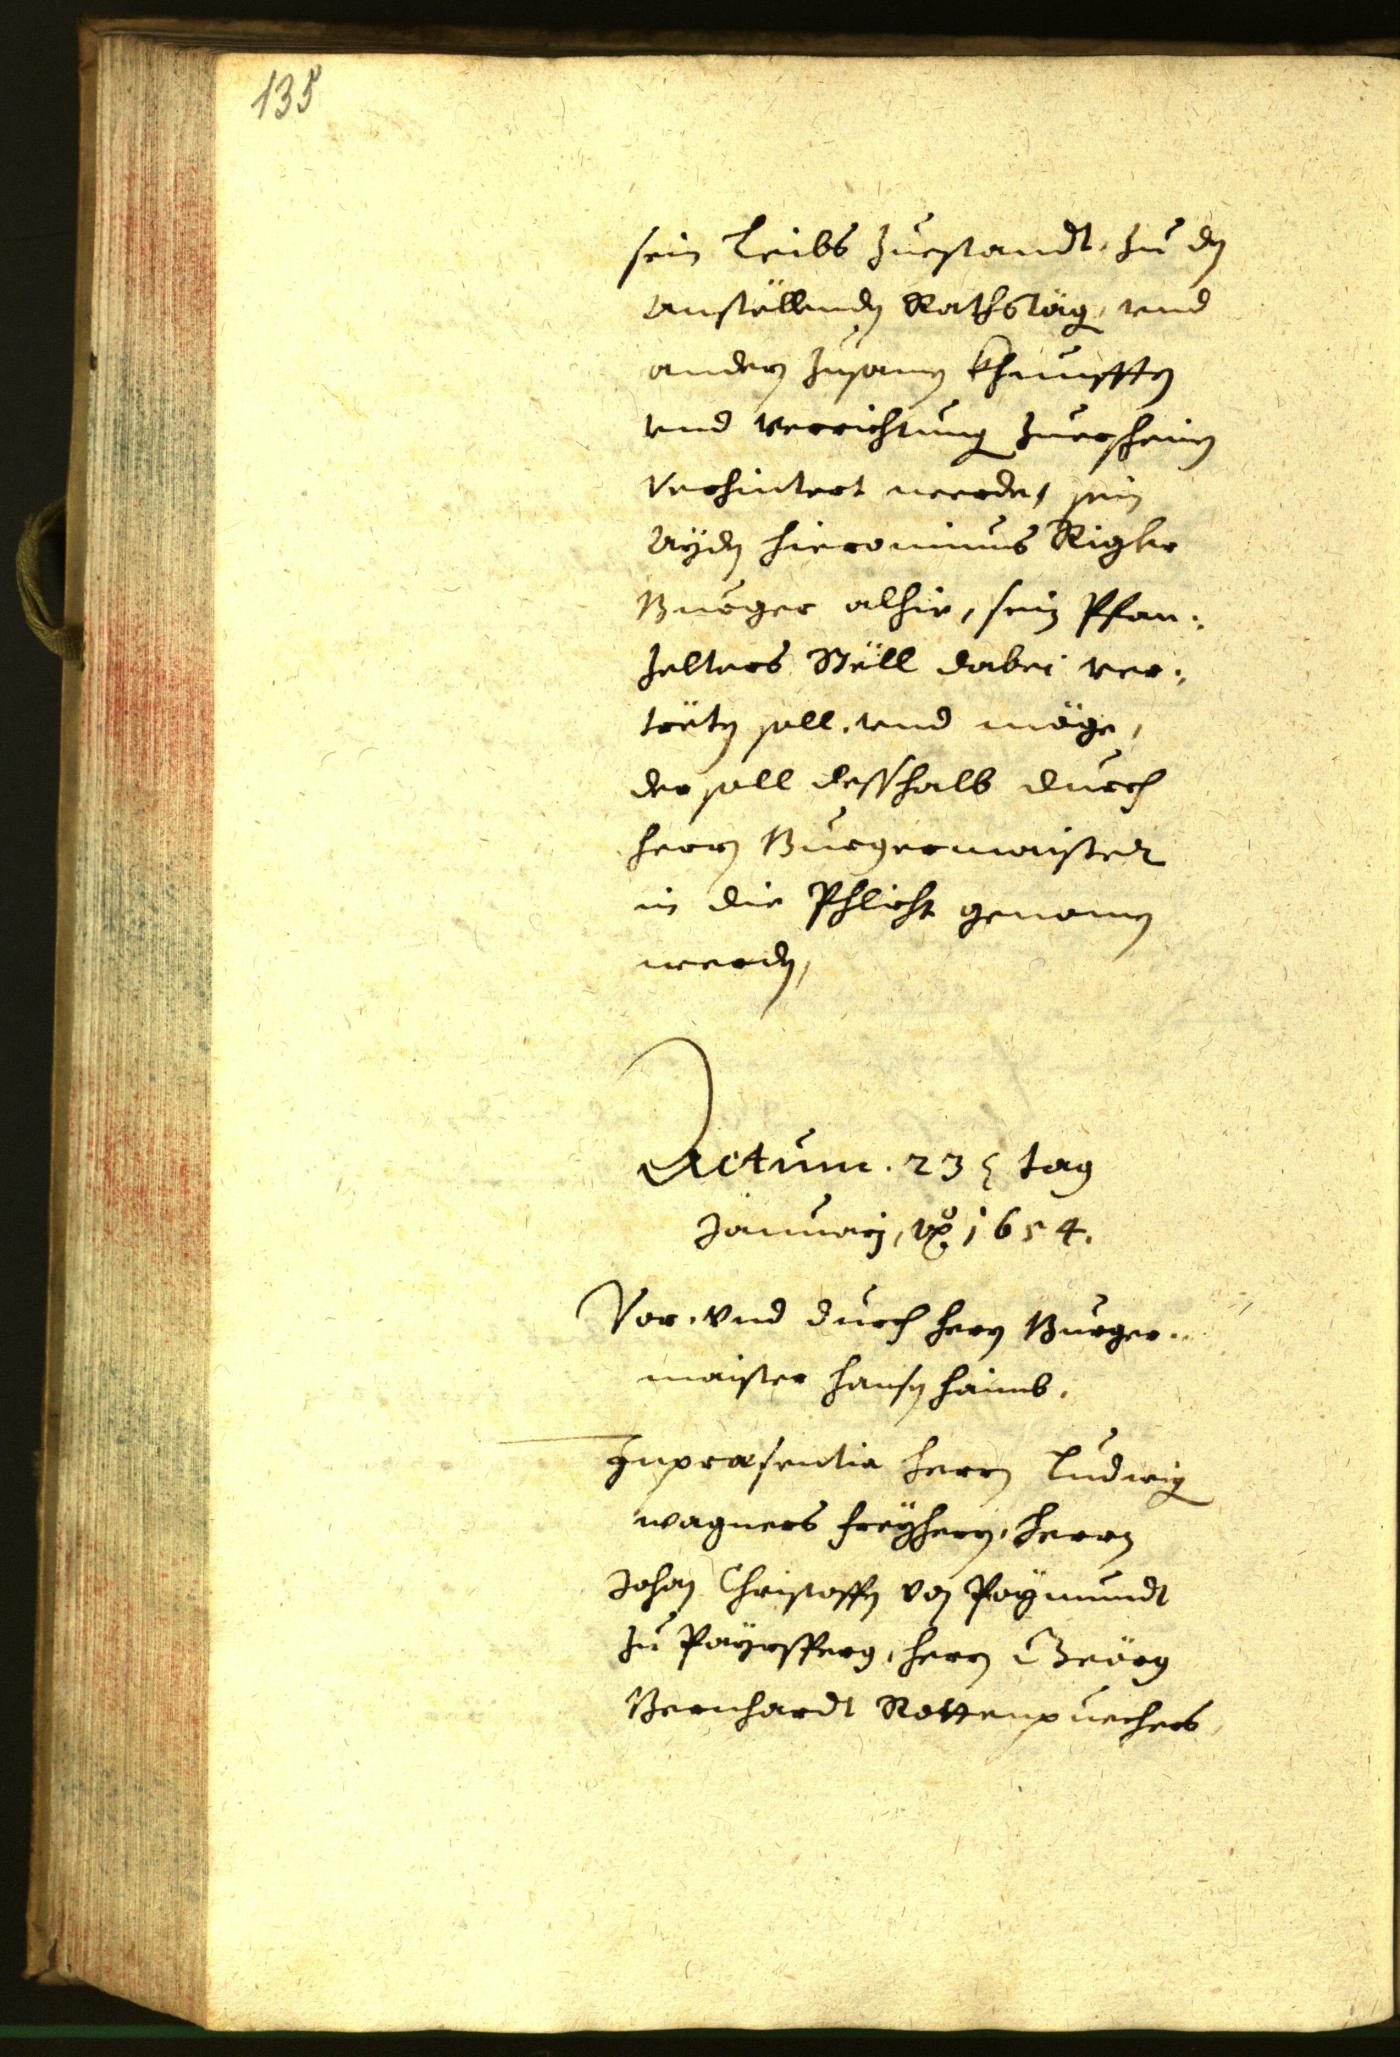 135
sein Leibs zuestandt, zu den
anstellenden Rathstäg, vnd
andern zusamen khunfften
vnd verrichtung zuerscheinen
verhintert werde, sein
Ayden Hieronimus Rigler
Burger alhie, sein Pfan-
zelters Stëll dabei ver-
trëten soll, vnd möge,
der soll desshalb durch
Herrn Burgermaister
in die Phlicht genomen
werden,
Actum. 23 tag
Januarij, 1654.
Vor, vnd durch Herrn Burger-
maister Hansen Haimb.
In praesentia Herrn Ludwig
Wagners Freyherrn, Herrn
Johan Christoffen von Paymundt
zu Payrsperg, Herrn Geörg
Bernhardt Rottenpuechers